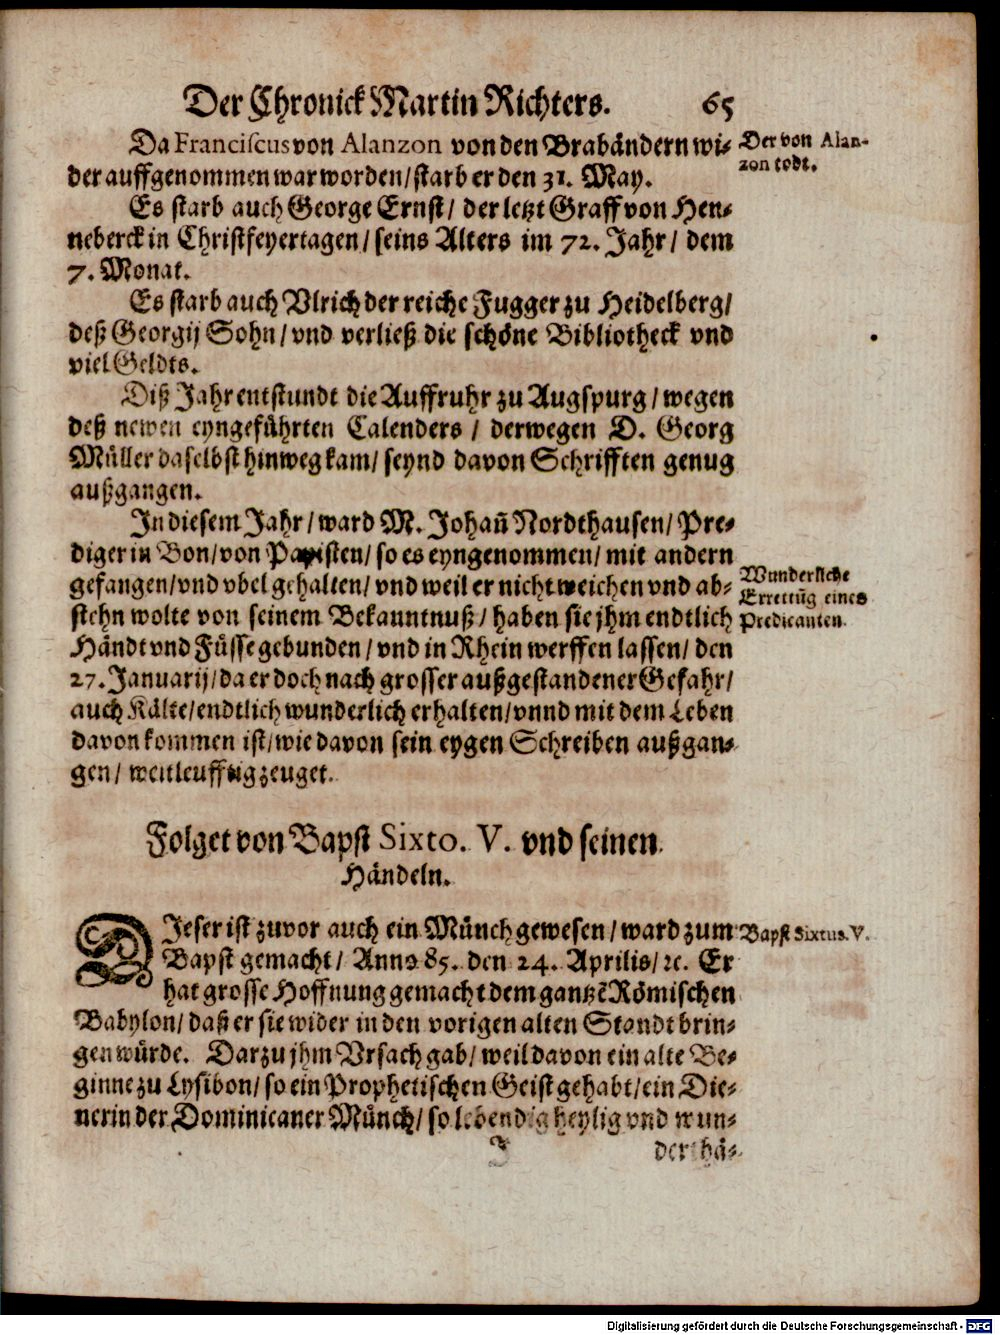 Der Chronick Martin Richters. 65
Da Franciscus von Alanzon von den Brabändern wi-
der auffgenommen war worden/ starb er den 31. May.
Der von Alan-
zon todt.
Es starb auch George Ernst/ der letzt Graff von Hen-
neberck in Christfeyertagen/ seins Alters im 72. Jahr/ dem
7. Monat.
Es starb auch Vlrich der reiche Fugger zu Heidelberg/
deß Georgij Sohn/ vnd verließ die schöne Bibliotheck vnd
viel Geldts.
Diß Jahr entstundt die Auffruhr zu Augspurg/ wegen
deß newen eyngeführten Calenders / derwegen D. Georg
Müller daselbst hinweg kam/ seynd davon Schrifften genug
außgangen.
In diesem Jahr/ ward M. Johañ Nordthausen/ Pre-
diger in Bon/ von Papisten/ so es eyngenommen/ mit andern
gefangen/ vnd vbel gehalten/ vnd weil er nicht weichen vnd ab-
stehn wolte von seinem Bekanntnuß/ haben sie jhm endtlich
Händt vnd Füsse gebunden/ vnd in Rhein werffen lassen/ den
27. Januarij/ da er doch nach grosser außgestandener Gefahr/
auch Kälte/ endtlich wunderlich erhalten/ vnnd mit dem Leben
davon kommen ist/ wie davon sein eygen Schreiben außgan-
gen/ weitleufftig zeuget.
Wunderliche
Errettũg eines
Predicanten.
Folget von Bapst Sixto. V. vnd seinen
Händeln.
DIeser ist zuvor auch ein Münch gewesen/ ward zum
Bapst gemacht/ Anno 85. den 24. Aprilis/ ꝛc. Er
hat grosse Hoffnung gemacht dem gantzẽ Römischen
Babylon/ daß er sie wider in den vorigen alten Standt brin-
gen würde. Darzu jhm Vrsach gab/ weil davon ein alte Be-
ginne zu Lysibon/ so ein Prophetischen Geist gehabt/ ein Die-
nerin der Dominicaner Münch/ so lebendig heylig vnd wun-
Bapst Sixtus. V.
I derthä-
Digitalisierung gefördert durch die Deutsche Forschungsgemeinschaft - DFG